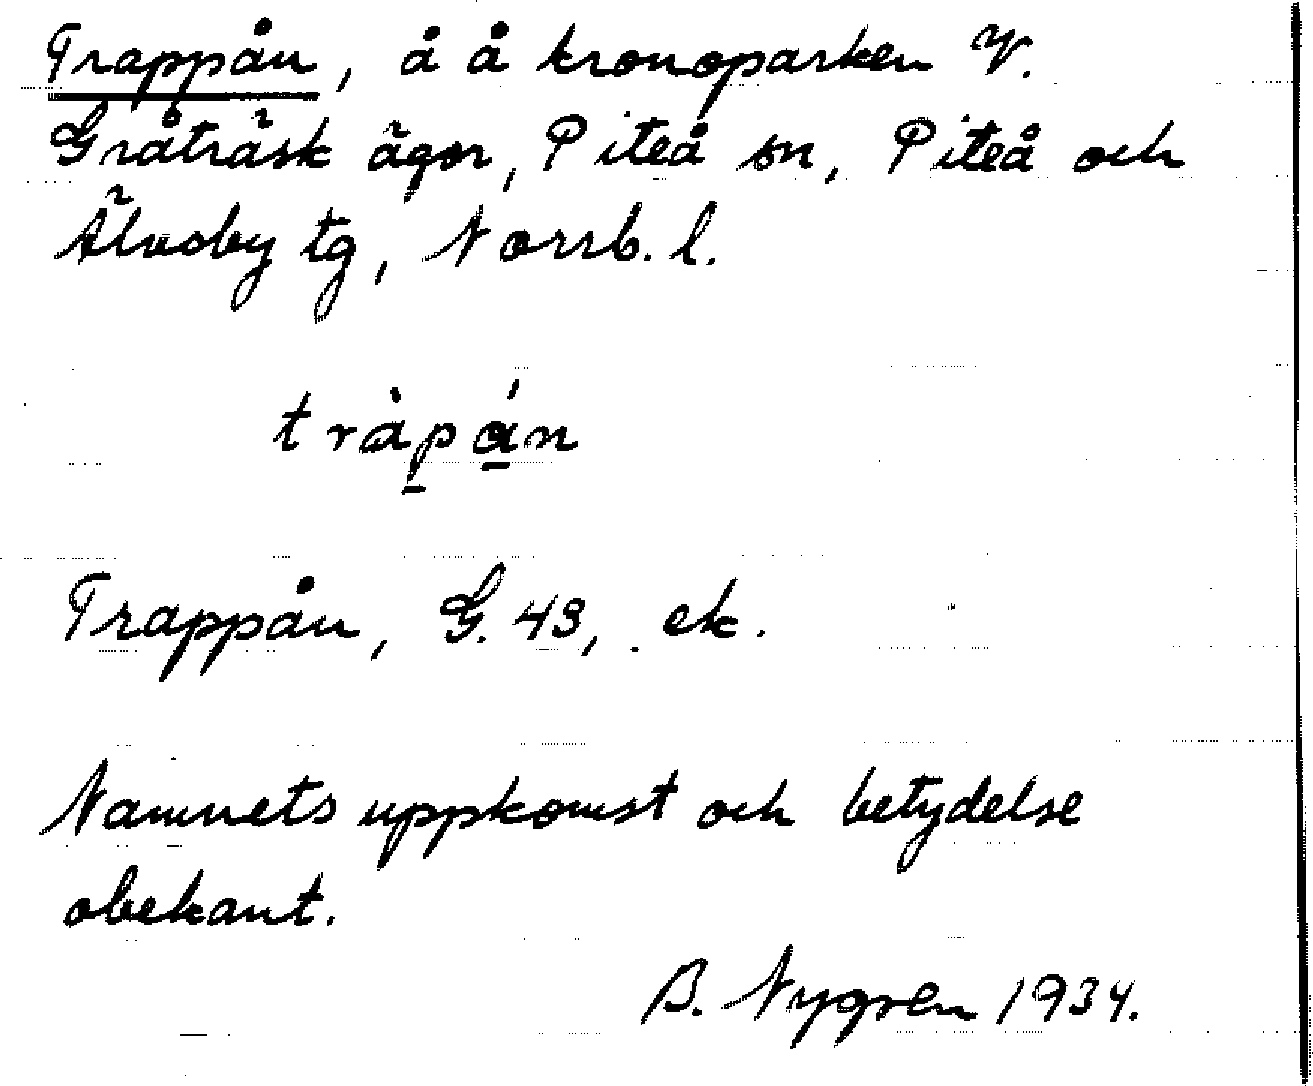 Trappån, å å kronoparken V.
Gråträsk ägor, Piteå sn, Piteå och
Älvsby tg, Norrb. l.
tràpán
Trappån, G. 43, ek.
Namnets uppkomst och betydelse
obekant.
B. Nygren 1934.